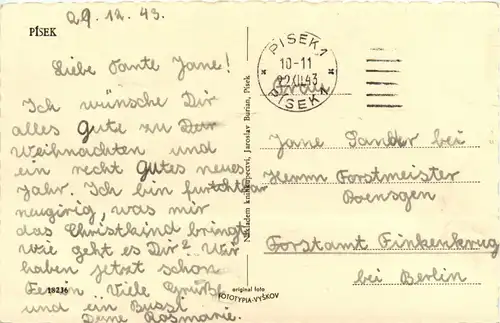 29.12.43.
PÍSEK
Liebe Tante Jane!
Ich wünsche Dir
alles Gute zu Dur
Weihnachten und
ein recht Gutes neues
Jahr. Ich bin furchtbar
neugirig, was mir
das Christkind bringt,
Wie geht es Dir? Wir
haben jetzt schon
Ferien. Viele Grüße
und ein Bussl
Deine Rosmarie.
18236
Nakladem knihkupectví, Jaroslav Burian, Písek
original foto
FOTOTYPIA-VYŠKOV
PÍSEK 1
10-11
22.XII.43
PÍSEK 1
Frau
Jane Sander bei
Herrn Forstmeister
Boensgen
Forstamt Finkenkrug
bei Berlin